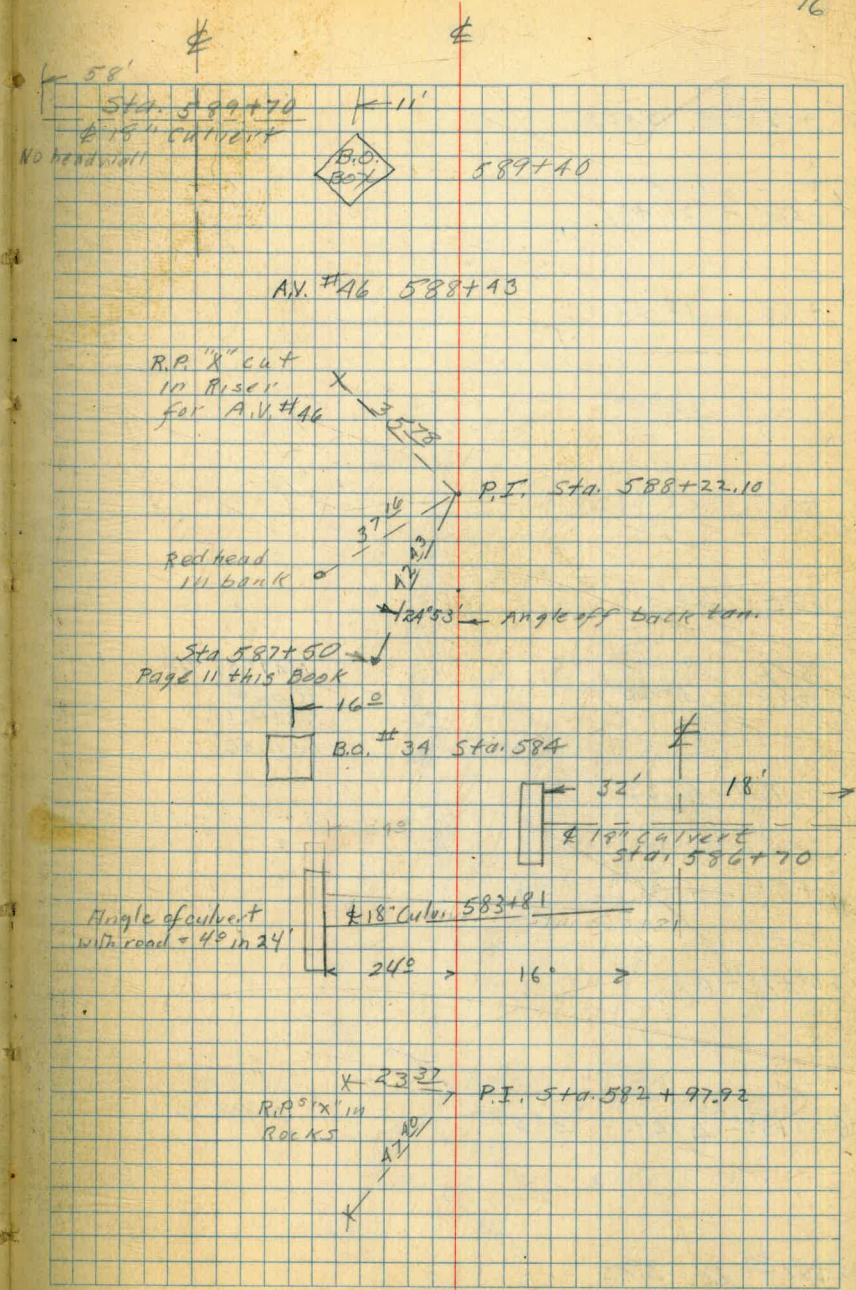 16
℄ ℄
58'
Sta. 589+70
℄ 18" Culvert
No headwall
11'
B.O.
BOX
589+40
A.V. #46 588+43
R.P. "X" cut
in Riser
for A.V. #46
35 78
P.I. Sta. 588+22.10
37 16
Red head
in bank
72 23
24°53' Angle off back tan.
Sta 587+50
Page 11 this Book
16 0
B.O. #34 Sta. 584
℄
32' 18'
℄ 18" Culvert
Sta. 586+70
Angle of culvert
with road = 4 0 in 24'
℄ 18" Culv. 583+81
24 0 16'
23 37
P.I. Sta. 582 + 97.92
R.P.s "X" in
Rocks
47 40